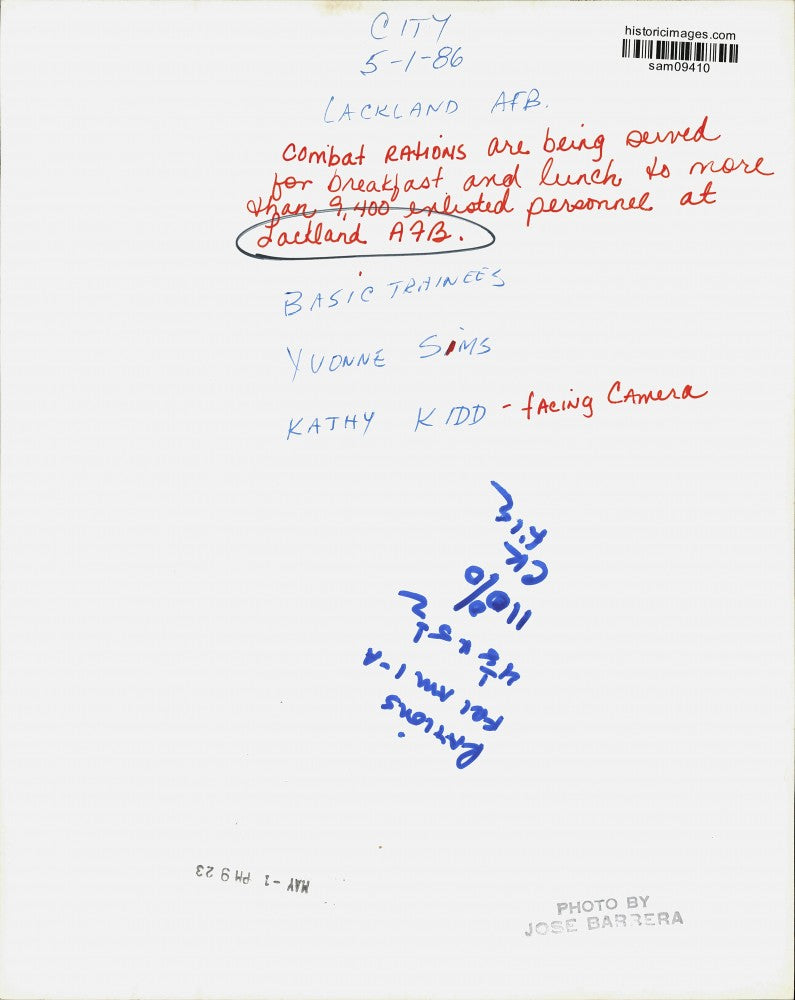 CITY
5-1-86
historicimages.com
sam09410
LACKLAND AFB.
Combat RATIONS are being served
for breakfast and lunch to more
than 9,400 enlisted personnel at
Lackland AFB.
BASIC TRAINEES
YVONNE SIMS
KATHY KIDD - fACING CAMERA
RATIONS
FRI AM 1-A
110%
CK
MAY -1 PM 9 23
PHOTO BY
JOSE BARRERA